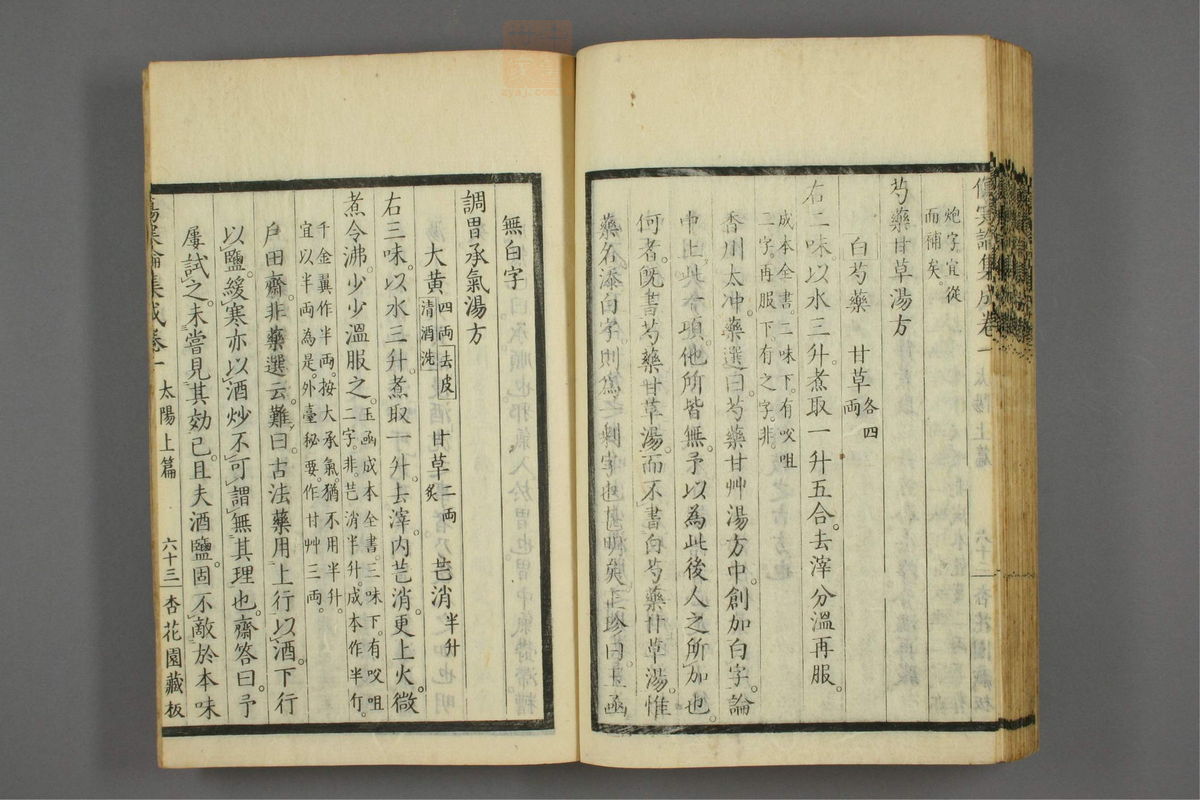 傷寒論集成卷一 太陽上篇 六十二 杏花園藏板
炮字宜從
而補矣。
芍藥甘草湯方
白芍藥 甘草各四兩
右二味。以水三升。煮取一升五合。去滓分溫再服。
成本全書。二味下。有㕮咀
二字。再服下。有之字。非。
香川太冲藥選曰。芍藥甘艸湯方中。創加白字。論
中上此一項。他所皆無。予以為此後人之所加也。
何者。既書芍藥甘草湯。而不書白芍藥甘草湯。惟
藥名添白字。則為之剩字也明矣。正珍曰。玉函
無白字
調胃承氣湯方
大黃四兩去皮清酒洗 甘草二兩炙 芒消半升
右三味。以水三升。煮取一升。去滓。內芒消。更上火。微
煮令沸。少少溫服之。玉函成本全書。三味下。有㕮咀二字。非。芒消半升。成本作半斤。
千金翼作半両。按大承氣。猶不用半升。
宜以半両為是。外臺秘要。作甘艸三両。
戶田齋。非藥選云。難曰。古法藥用上行。以酒。下行
以鹽。緩寒亦以酒炒。不可謂無其理也。齋答曰。予
屢試之。未嘗見其効已。且夫酒鹽。固不敵於本味
傷寒論集成卷一 太陽上篇 六十三 杏花園藏板